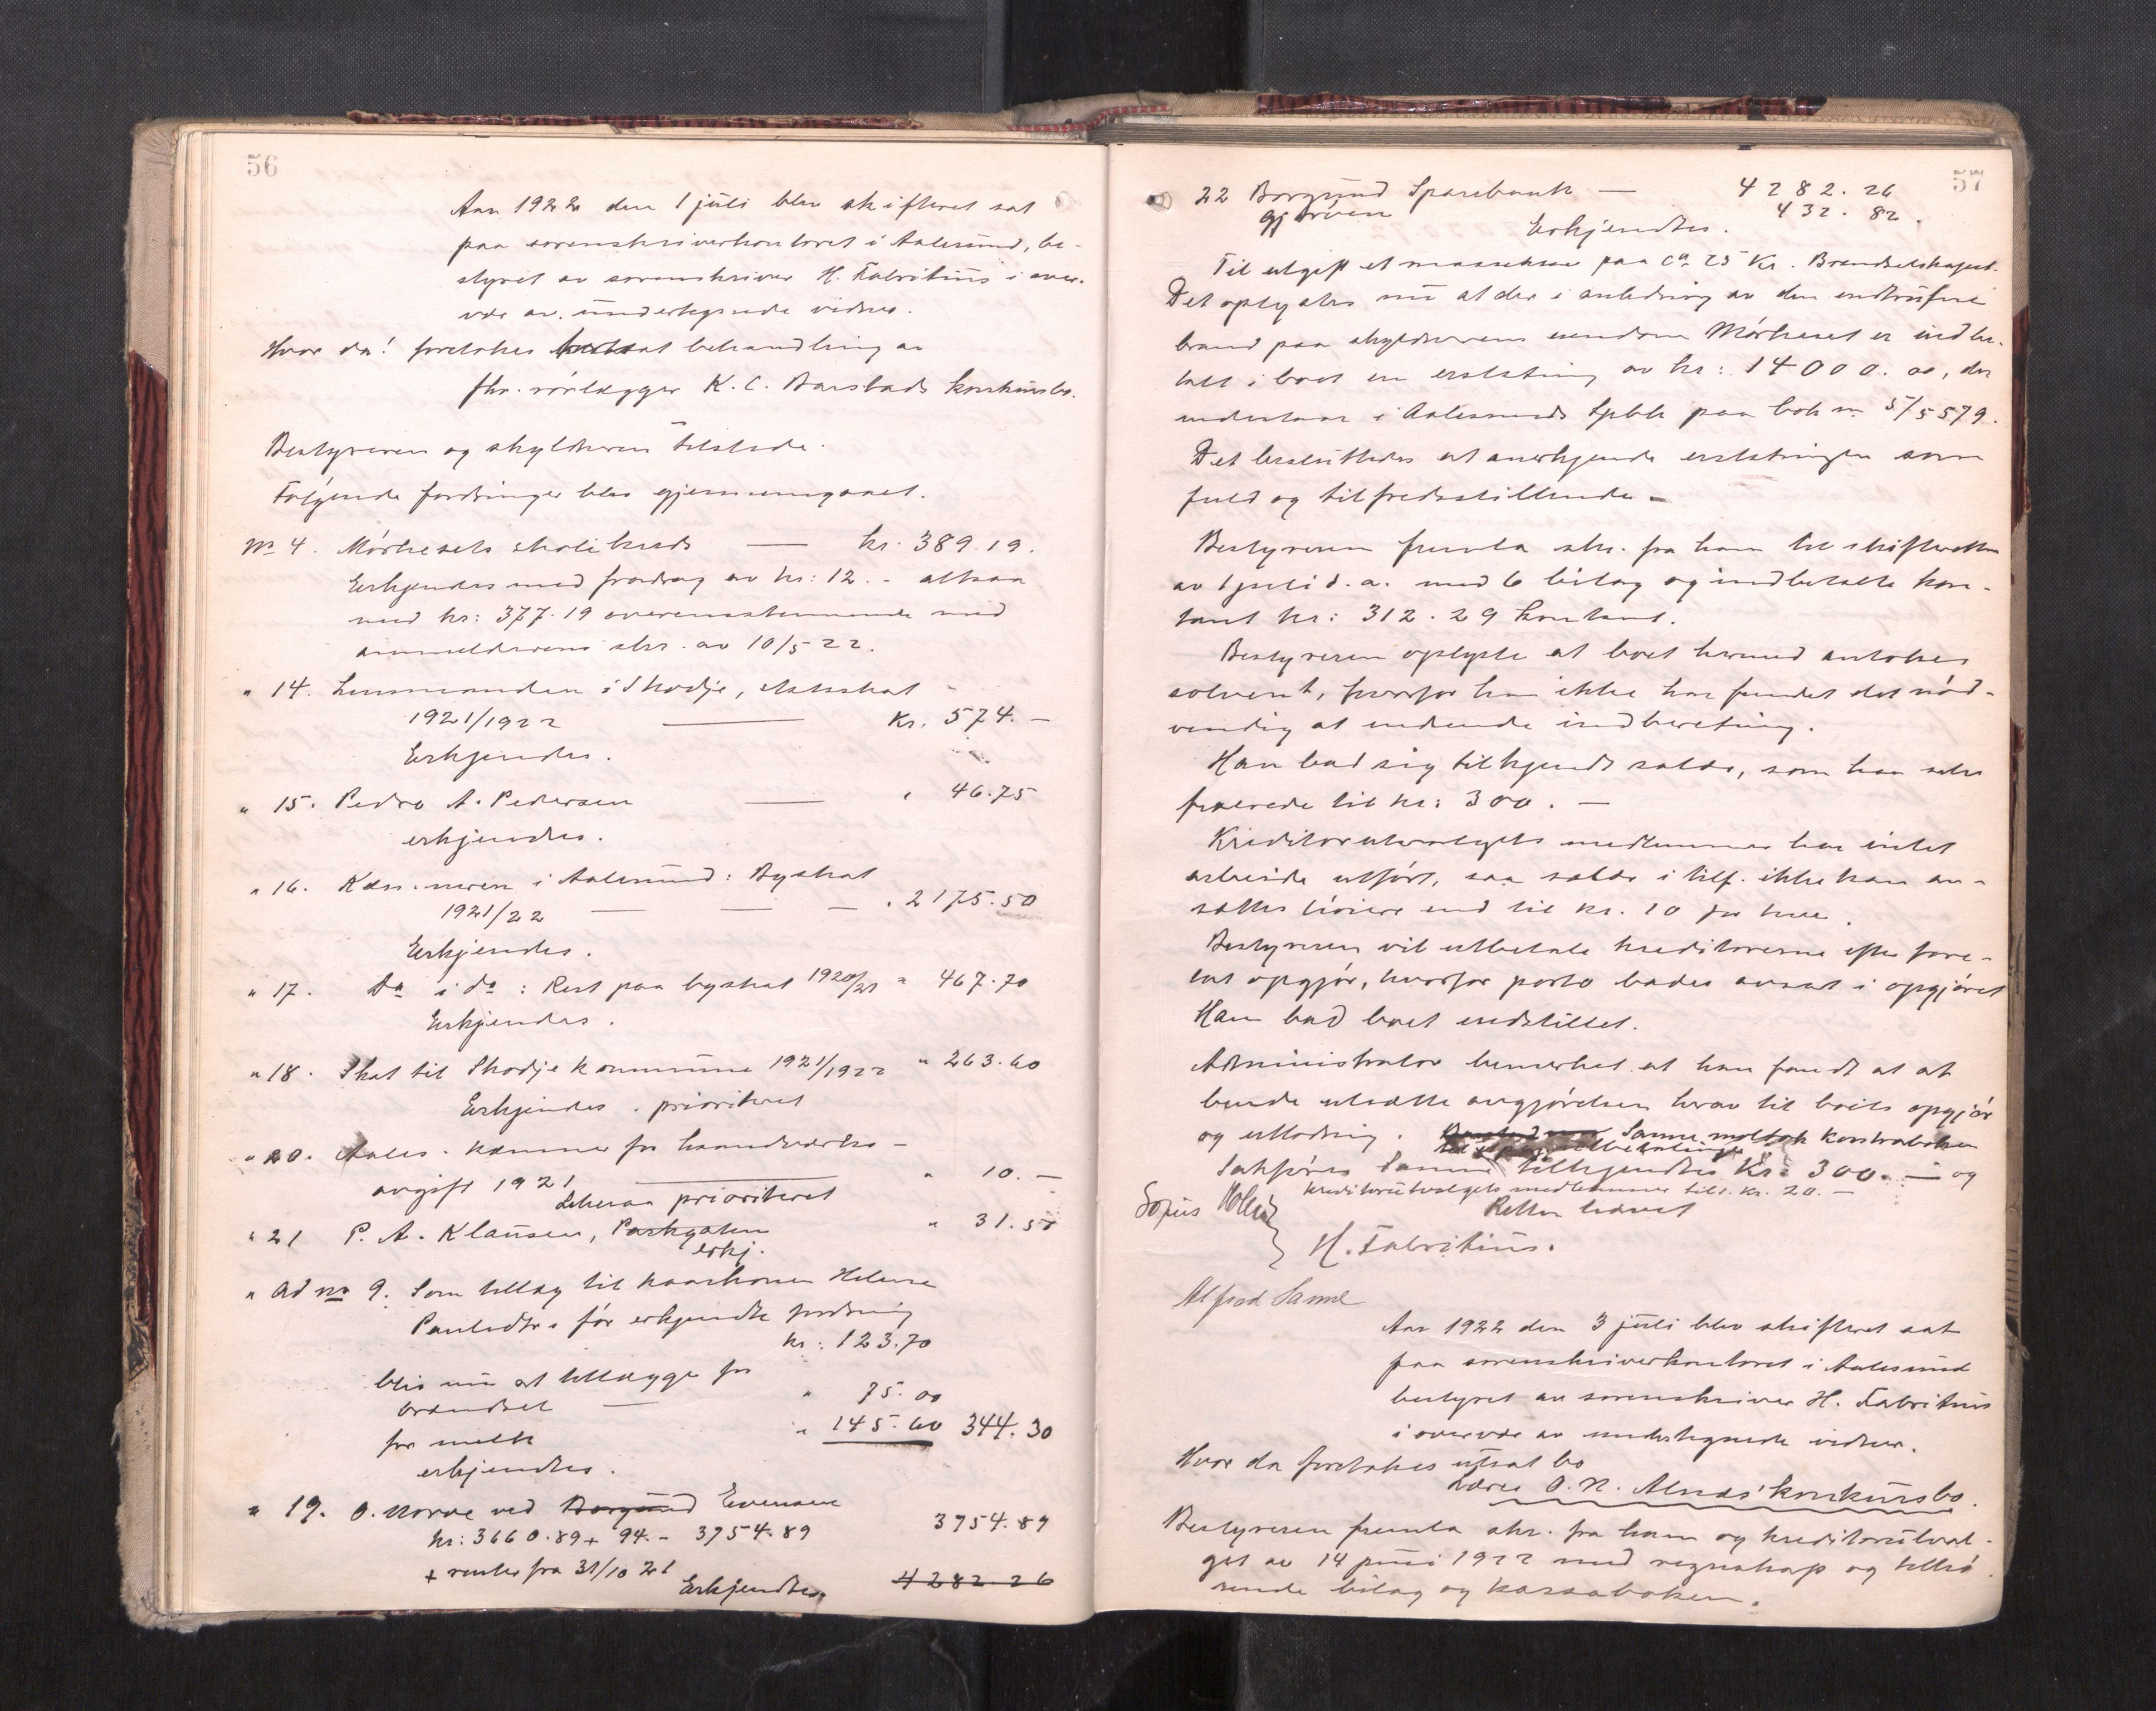 56
Aar 1922 den 1 juli blev skifteret sat
paa sorenskriverkontoret i Aalesund, be-
styret av sorenskriver H. Fabritius i over-
vær av undertegnede vidner.
Hvor da! foretokes fortsat behandling av
fhv. rørlægger K. C. Barstads konkursbo.
Bestyreren og skyldneren tilstede.
Følgende fordringer blev gjennemgaaet.
No 4. Mørkesets skolekreds — kr. 389.19.
Erkjendes med fradrag av kr: 12. - altsaa
med kr: 377.19 overensstemmende med
anmelderens skr. av 10/5 22.
" 14. Lensmanden i Skodje, skat
1921/1922 — Kr. 574. —
Erkjendes.
" 15. Pedro A. Pedersen — " 46.75
erkjendes.
" 16. Kæmneren i Aalesund: Byskat
1921/22 — — — " 2175.50
Erkjendes.
" 17. Do i do : Rest paa byskat 1920/21 " 467.70
Erkjendes.
" 18. Skat til Skodje kommune 1921/1922 " 263.60
Erkjendes. prioriteret
" 20. Aales. kæmner for haandverks-
avgift 1921 — " 10. —
prioriteret
" 21 P. A. Klausen, Parkgaten " 31.50
erkj.
" Ad no 9. Som tillæg til
før erkjendte fordring
kr: 123.70
blir nu at tillægge for
brændsel — " 75.00
for melk " 145.60 344.30
erkjendtes.
" 19. O. Norve ved Borgund Evensen
kr: 3660.89 + 94. - 3754.89 3754.89
+ renter fra 31/10 21
Erkjendtes. 4282.26
57
22 Borgund Sparebank — 4282.26
432.82.
Erkjendtes.
Til utgift et paa ca 25 Kr.
Det oplystes nu at der i anledning av den indtrufne
brand paa skyldnerens eiendom Mørkeset er indbe-
talt i boet en erstatning av kr: 14000.00, der
indestaar i Aalesunds Spbk paa bok no 5/5579.
Det besluttedes at anerkjende erstatningen som
fuld og tilfredsstillende -
Bestyreren fremla skr. fra ham til skifteretten
av 1 juli d.a. med 6 bilag og indbetalte kon-
tant kr: 312.29 kontant.
Bestyreren oplyste at boet hermed antokes
solvent, hvorfor han ikke har fundet det nød-
vendig at indsende indberetning.
Han bad sig tilkjendt salær, som han selv
fikserede til kr: 300. —
Kreditorutvalgets medlemmer har intet
arbeide utført, saa salær i tilf. ikke kan an-
sættes høiere end til kr. 10 for hver.
Bestyreren vil utbetale kreditorerne efter fore-
tat opgjør, hvorfor porto bades avsat i opgjøret
Han bad boet indstillet.
Administrator bemerket at han fandt at at
burde utsætte avgjørelsen herav til boets opgjør
og utlodning. Sanne mottok kontraboken
til utbetaling
Sakfører Sanne tilkjendtes Kr. 300. — og
Kreditorutvalgets medlemmer tils. kr. 20. —
Retten hævet
Sofus Holen
H. Fabritius.
Alfred Sanne
Aar 1922 den 3 juli blev skifteret sat
paa sorenskriverkontoret i Aalesund
bestyret av sorenskriver H. Fabritius
i overvær av undertegnede vidner.
Hvor da foretokes utsat bo
O. N. Alnæs' konkursbo.
Bestyreren fremla skr. fra ham og kreditorutval-
get av 14 juni 1922 med regnskap og tilhø-
rende bilag og kassaboken.